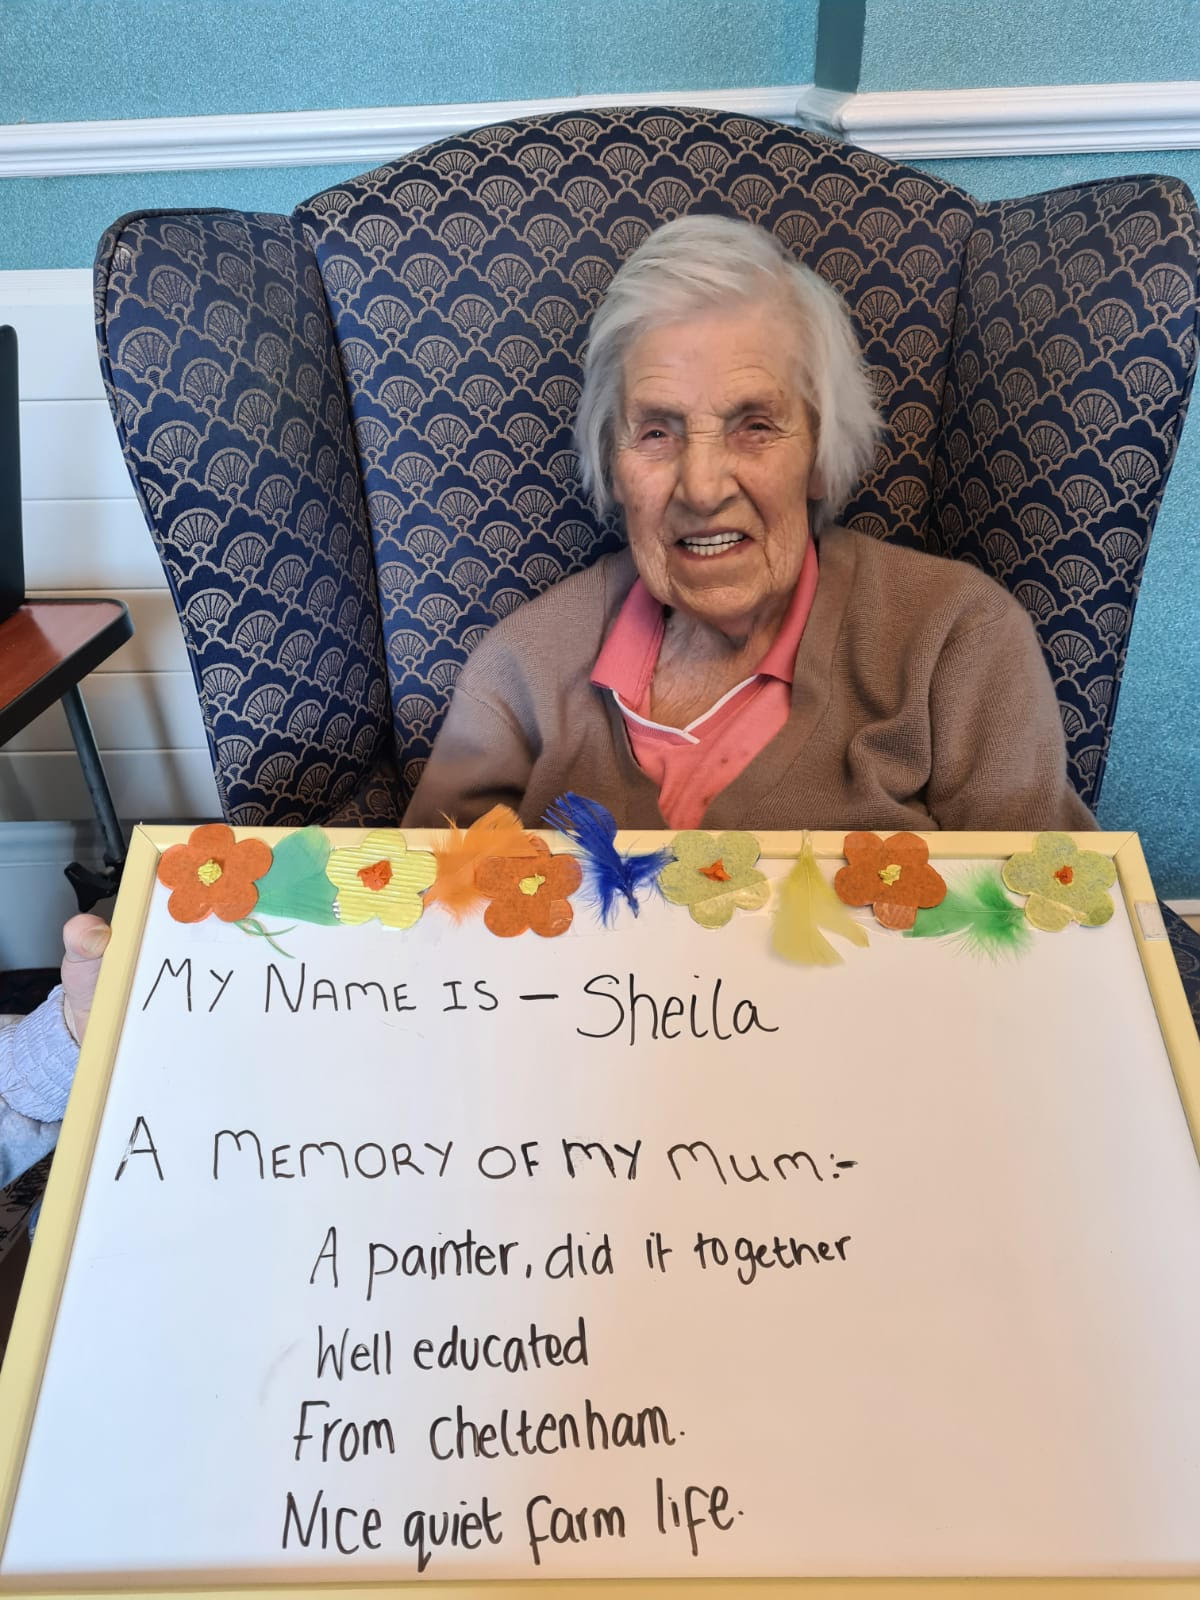 MY NAME IS - Sheila
A MEMORY OF MY MUM:-
A painter, did it together
Well educated
From Cheltenham.
Nice quiet farm life.